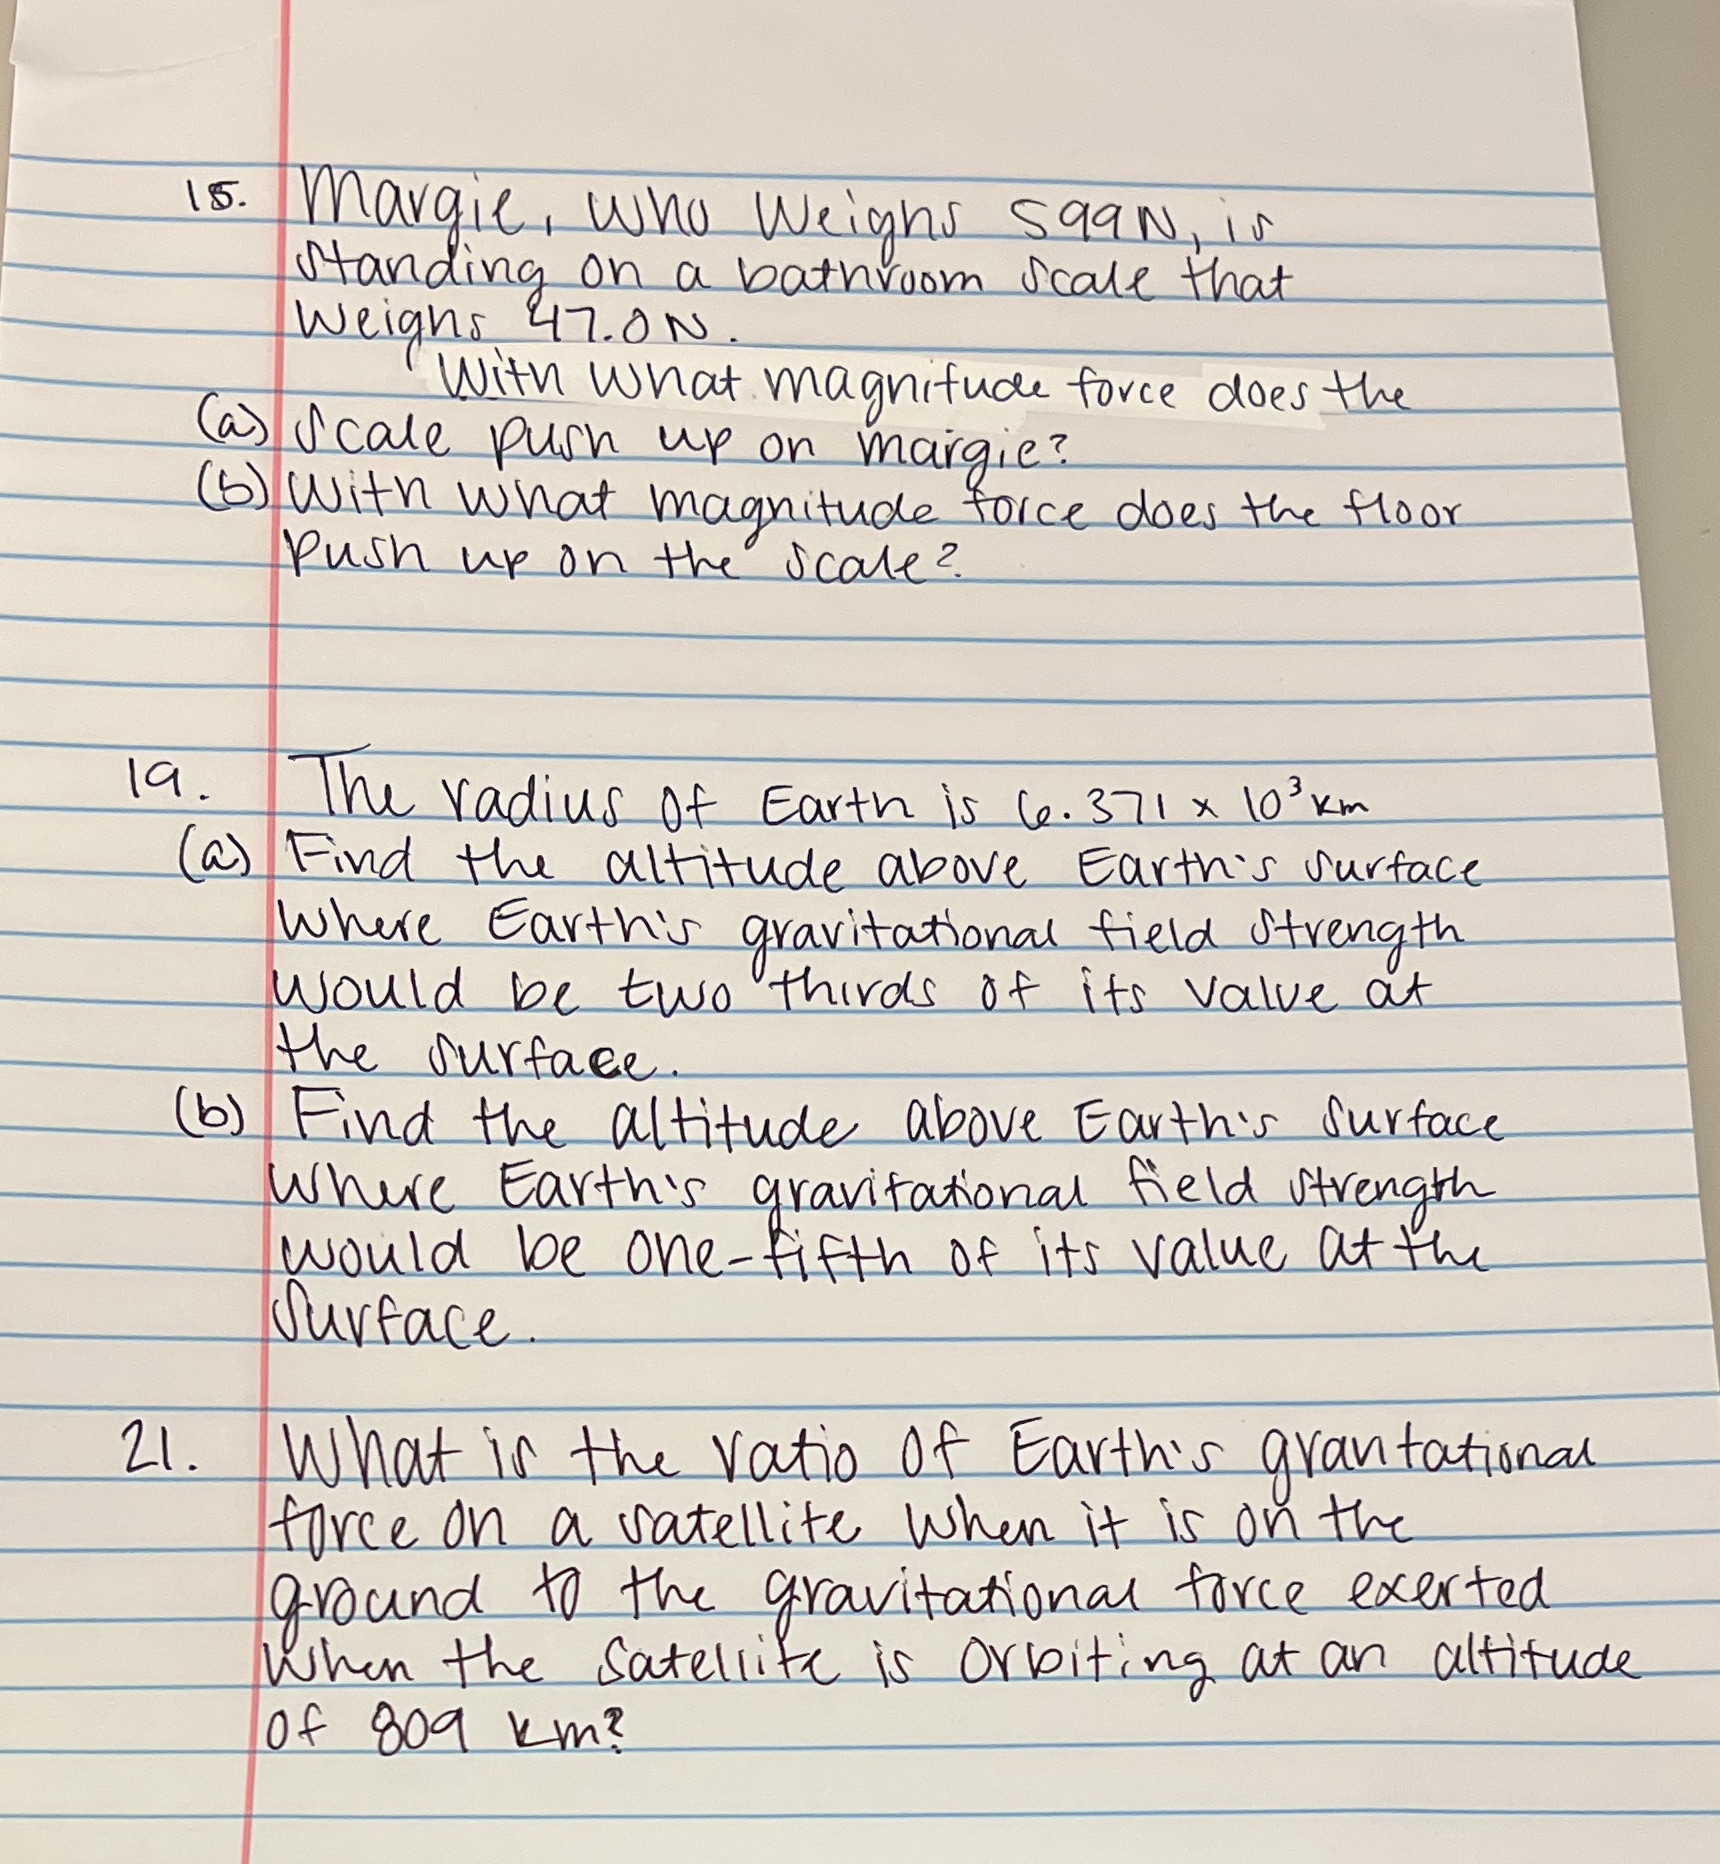 15. Margie, who weighs 599N, is
standing on a bathroom scale that
weighs 47.0N.
With what magnitude force does the
(a) scale push up on margie?
(b) With what magnitude force does the floor
push up on the scale?
19. The radius of Earth is 6.371 x 10³ km
(a) Find the altitude above Earth's surface
where Earth's gravitational field strength
would be two thirds of its value at
the surface.
(b) Find the altitude above Earth's surface
where Earth's gravitational field strength
would be one-fifth of its value at the
surface.
21. What is the ratio of Earth's gravitational
force on a satellite when it is on the
ground to the gravitational force exerted
when the satellite is orbiting at an altitude
of 809 km?